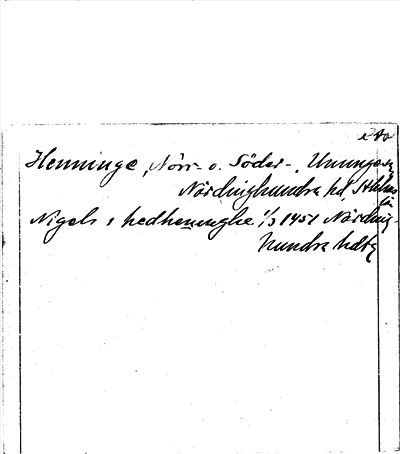 Henninge, Norr- o. Söder-, Ununge sn
Närdinghundra hd, Sthlms
län
Nigels i hedhemnghe 1/3 1451 Närding-
hundra hdtg